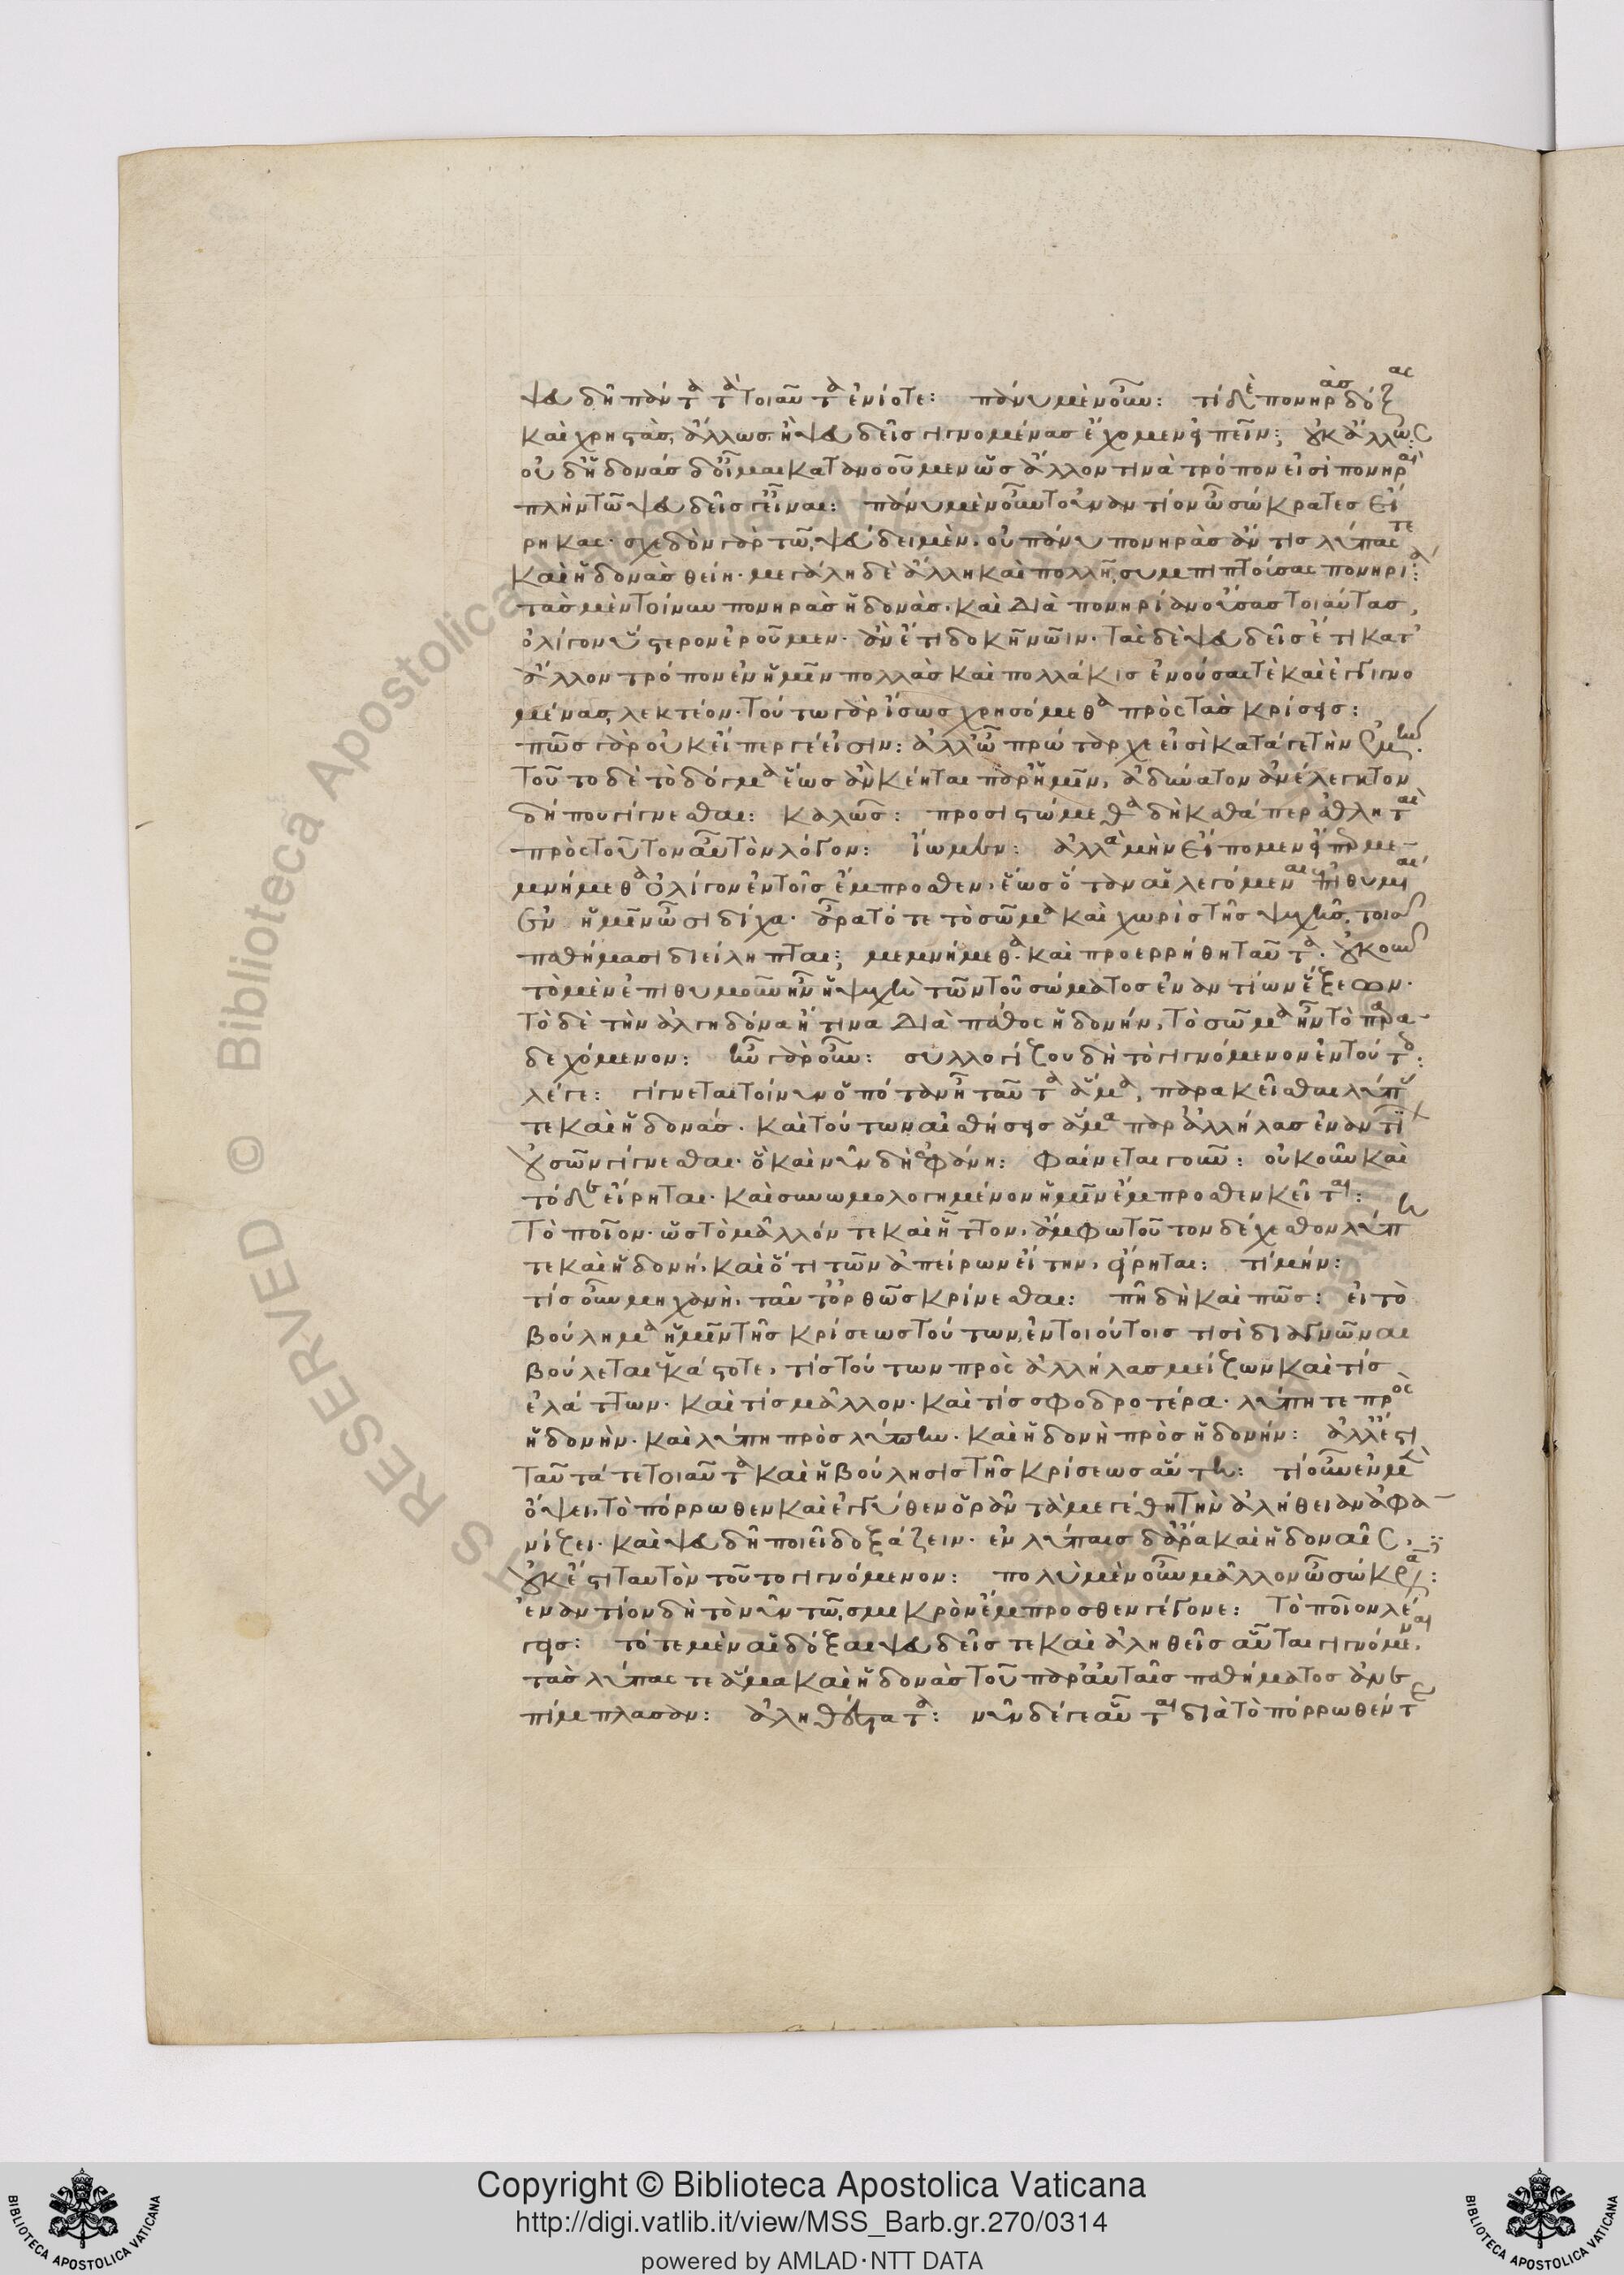 ψευδῆ πάντα τὰ τοιαῦτα ἐνίοτε: πάνυ μὲν οὖν: τί δὲ πονηρὰσ δόξας
καὶ χρηστὰσ, ἄλλωσ ἢ ψευδεῖσ γιγνομένασ ἔχομεν εἰπεῖν; οὐκ ἄλλως:
οὐδ' ἡδονάσ δ' οἶμαι κατανοοῦμεν ὡσ ἄλλον τινὰ τρόπον εἰσὶ πονηραὶ
πλὴν τῶ ψευδεῖσ εἶναι: πάνυ μὲν οὖν τοὐναντίον ὦ σώκρατεσ εἴ
ρηκας· σχεδὸν γὰρ τῶ, ψεύδει μὲν, οὐ πάνυ πονηρὰσ ἄν τισ λύπας τε
καὶ ἡδονὰσ θείη· μεγάλη δὲ ἄλλη καὶ πολλῆ, συμπιπτούσας πονηρία:
τὰσ μὲν τοίνυν πονηρὰσ ἡδονὰσ, καὶ διὰ πονηρίαν οὔσασ τοιαύτασ,
ὀλίγον ὕστερον ἐροῦμεν· ἂν ἔτι δοκῆ νῶιν· τὰς δὲ ψευδεῖσ ἔτι κατ'
ἄλλον τρόπον ἐν ἡμῖν πολλὰσ καὶ πολλάκισ ἐνούσας τὲ καὶ ἐγγιγνο
μένασ, λεκτέον· τούτω γὰρ ἴσωσ χρησόμεθα πρὸς τὰσ κρίσεισ:
πῶσ γὰρ οὐκ εἴπερ γέ εἰσιν: ἀλλ' ὦ πρώταρχε εἰσὶ κατά γε τὴν ἐμήν.
τοῦτο δὲ τὸ δόγμα ἕωσ ἂν κέηται παρ' ἡμῖν, ἀδύνατον ἀνέλεγκτον
δήπου γίγνεσθαι: καλῶσ: προσιστώμεθα δὴ καθάπερ ἀθληταὶ
πρὸς τοῦτον αὖ τὸν λόγον: ἴωμεν: ἀλλὰ μὴν εἴπομεν εἴπερ με-
μνήμεθα ὀλίγον ἐν τοῖσ ἔμπροσθεν, ἕωσ ὅταν αἱ λεγόμεναι ἐπιθυμίαι
ἐν ἡμῖν ὦσι δίχα· ἄρα τότε τὸ σῶμα καὶ χωρὶσ τῆσ ψυχῆσ, τοῖσ
παθήμασι διείληπται; μεμνήμεθα· καὶ προερρήθη ταῦτα. οὐκοῦν
τὸ μὲν ἐπιθυμοῦν ἦν ἡ ψυχὴ τῶν τοῦ σώματοσ ἐναντίων ἕξεων·
τὸ δὲ τὴν ἀλγηδόνα ἤ τινα διὰ πάθος ἡδονήν, τὸ σῶμα ἦν τὸ παρα-
δεχόμενον: ἦν γὰρ οὖν: συλλογίζου δὴ τὸ γιγνόμενον ἐν τούτοισ:
λέγε: γίγνεται τοίνυν ὁπόταν ἦ ταῦτα ἅμα, παρακεῖσθαι λύπασ
τε καὶ ἡδονάσ. καὶ τούτων αἰσθήσεισ ἅμα παρ' ἀλλήλασ ἐναντίων
οὐσῶν γίγνεσθαι· ὃ καὶ νῦν δὴ ἐφάνη: φαίνεται γοῦν: οὐκοῦν καὶ
τόδε εἴρηται. καὶ συνωμολογημένον ἡμῖν ἔμπροσθεν κεῖται:
τὸ ποῖον· ὡσ τὸ μᾶλλόν τε καὶ ἧττον, ἄμφω τοῦτον δέχεσθον λύπη
τε καὶ ἡδονή, καὶ ὅτι τῶν ἀπείρων εἴτην, εἴρηται: τί μήν:
τίσ οὖν μηχανὴ, ταῦτ' ὀρθῶσ κρίνεσθαι: πῆ δὴ καὶ πῶσ: εἰ τὸ
βούλημα ἡμῖν τῆσ κρίσεωσ τούτων, ἐν τοιούτοισ τισὶ διαγνῶναι
βούλεται ἑκάστοτε, τίσ τούτων πρὸς ἀλλήλασ μείζων καὶ τίσ
ἐλάττων. καὶ τίσ μᾶλλον. καὶ τίσ σφοδροτέρα. λύπη τε πρὸς
ἡδονὴν. καὶ λύπη πρὸσ λύπην. καὶ ἡδονὴ πρὸσ ἡδονήν: ἀλλ' ἔστι
ταῦτά τε τοιαῦτα καὶ ἡ βούλησισ τῆσ κρίσεωσ αὕτη: τί οὖν ἐν μὲν
ὄψει, τὸ πόρρωθεν καὶ ἐγγύθεν ὁρᾶν τὰ μεγέθη τὴν ἀλήθειαν ἀφα-
νίζει. καὶ ψευδῆ ποιεῖ δοξάζειν. ἐν λύπαισ δ' ἄρα καὶ ἡδοναῖς,
οὐκ ἔστι ταυτὸν τοῦτο γιγνόμενον: πολὺ μὲν οὖν μᾶλλον ὦ σώκρατεσ:
ἐναντίον δὴ τὸ νῦν τῶ, σμικρὸν ἔμπροσθεν γέγονε: τὸ ποῖον λέ
γεισ: τότε μὲν αἱ δόξαι ψευδεῖσ τε καὶ ἀληθεῖσ αὗται γιγνόμεναι,
τὰσ λύπας τε ἅμα καὶ ἡδονὰσ τοῦ παρ' αὐταῖσ παθήματοσ ἀνε
πίμπλασαν: ἀληθέστατα: νῦν δέ γε αὗται διὰ τὸ πόρρωθέν τε